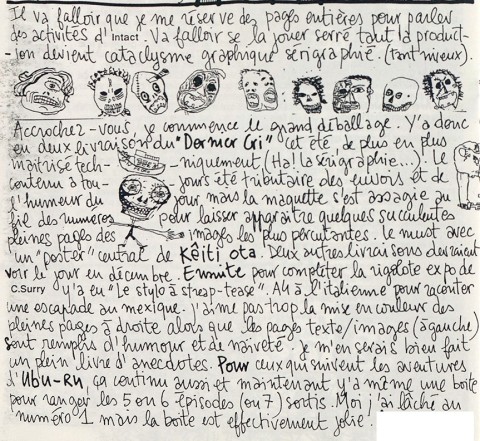 Il va falloir que je me réserve des pages entières pour parler
des activités d'Intact. Va falloir se la jouer serré tant la product-
-ion devient cataclysme graphique sérigraphié. (tant mieux).
Accrochez-vous, je commence le grand déballage. Y'a donc
eu deux livraison du "Dernier Cri" cet été, de plus en plus
maitrisé tech- -niquement (Ha! la sérigraphie...). Le
contenu à tou- -jours été tributaire des envois et de
l'humeur du jour, mais la maquette s'est assagie au
fil des numéros pour laisser apparaître quelques succulentes
pleines pages des images les plus percutantes. le must avec
un "poster" central de Keiti Ota. Deux autres livraisons devraient
voir le jour en décembre. Ensuite pour compléter la rigolote expo de
C.Surry y'a eu "Le stylo à streap-tease". A4 à l'italienne pour raconter
une escapade au mexique. j'aime pas trop la mise en couleur des
pleines pages à droite alors que les pages texte/images (à gauche)
sont remplis d'humour et de naïveté. Je m'en serais bien fait
un plein livre d'anecdotes. Pour ceux qui suivent les aventures
d'Ubu-Ru, ça continu aussi et maintenant y'a même une boite
pour ranger les 5 ou 6 épisodes (ou 7) sortis. Moi j'ai lâché au
numéro 1 mais la boite est effectivement jolie.